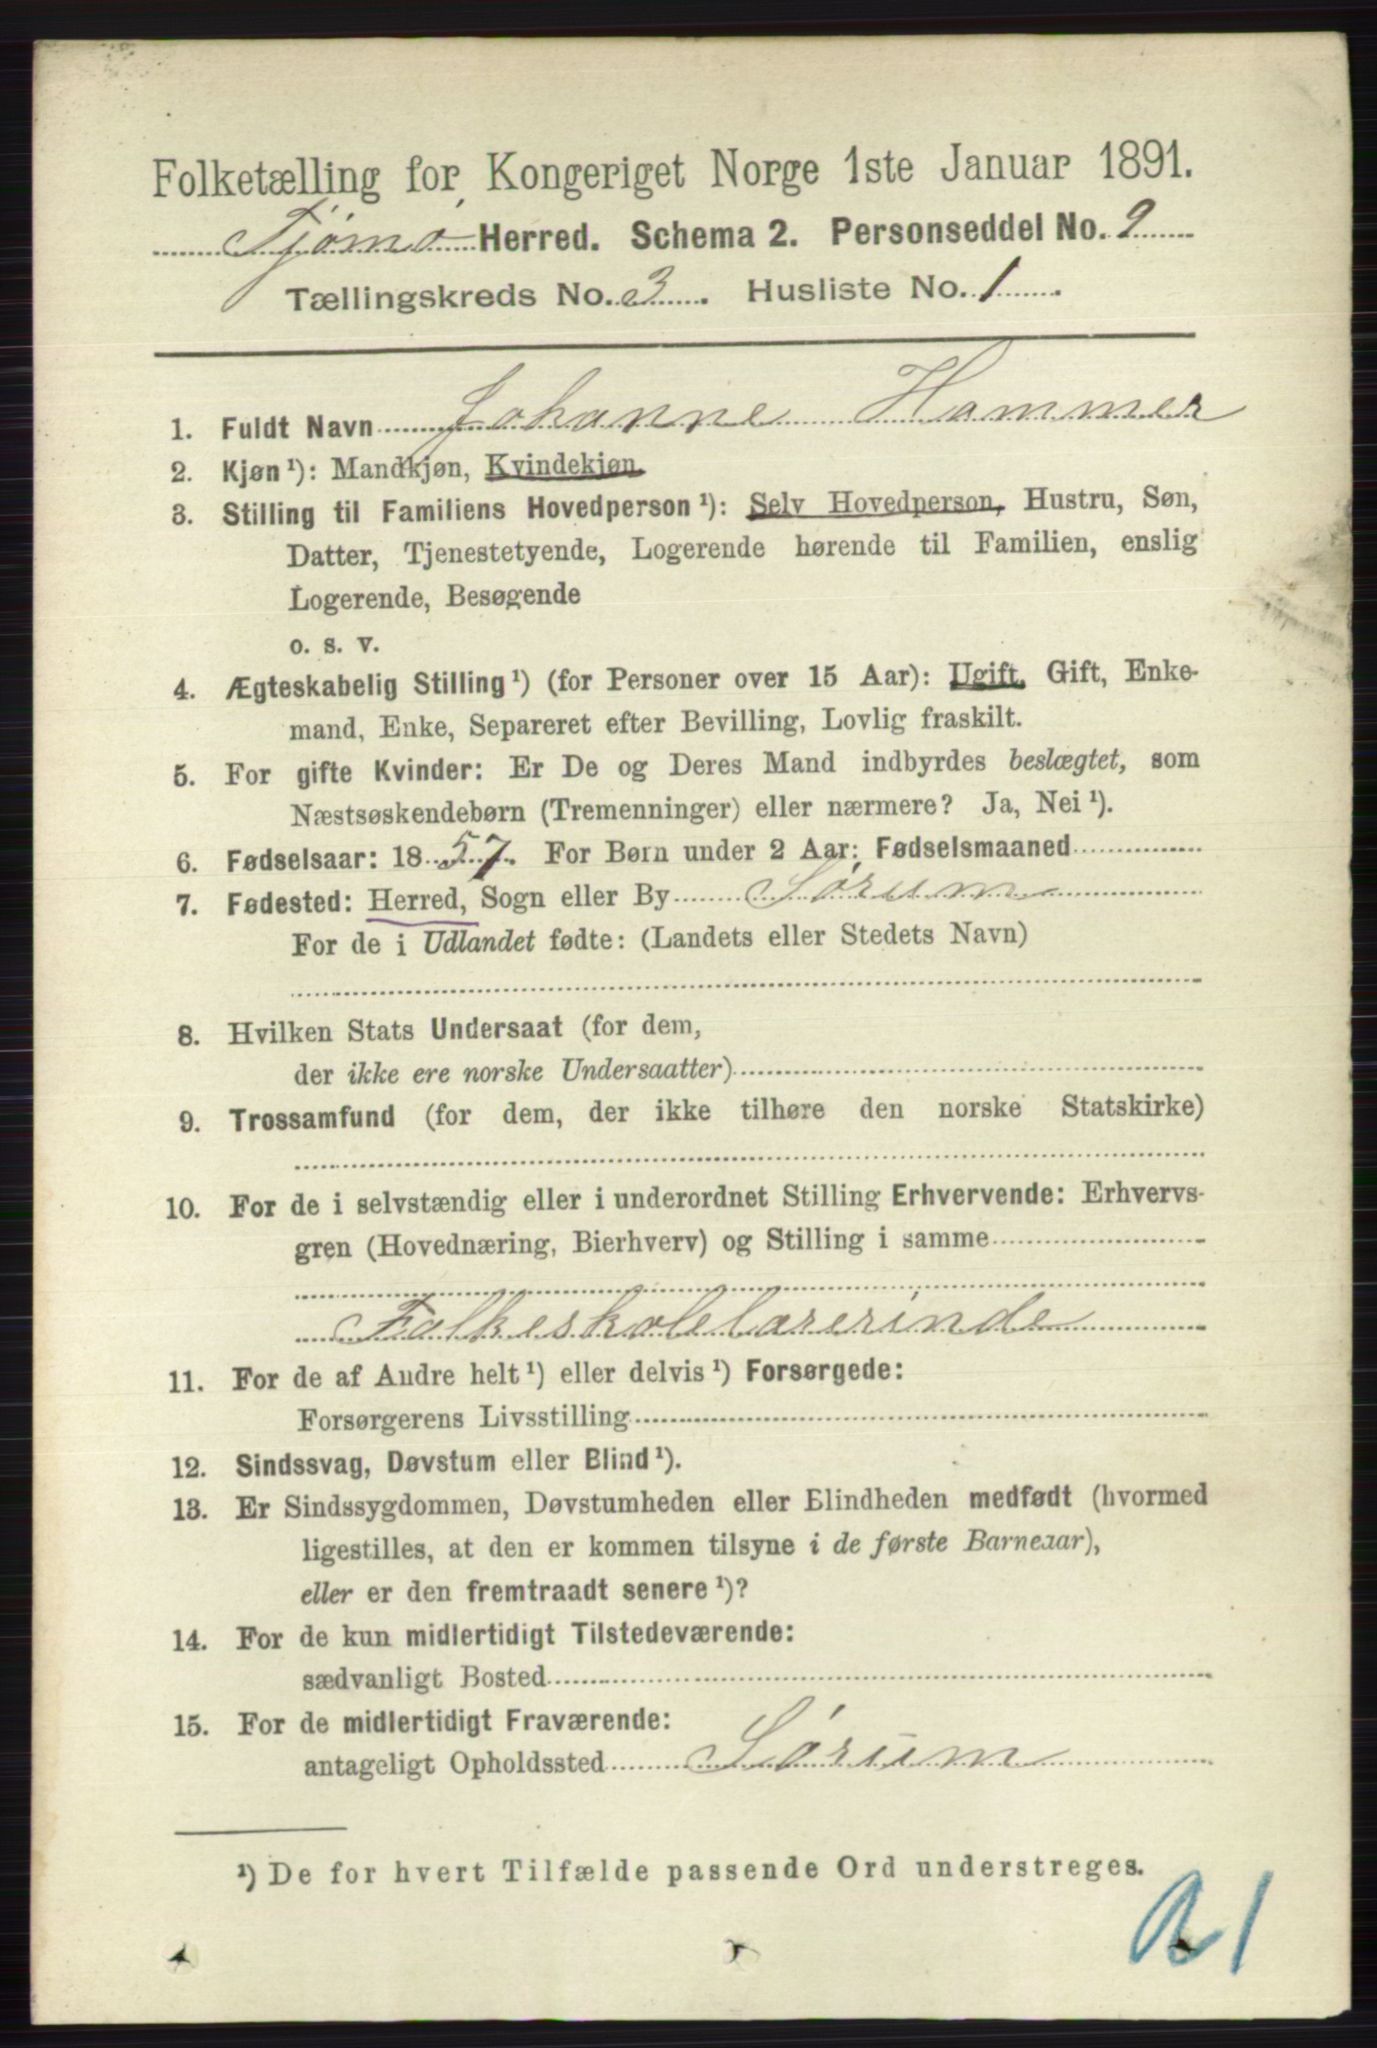 Folketælling for Kongeriget Norge 1ste Januar 1891.
Tjømø Herred. Schema 2. Personseddel No. 2
Tællingskreds No. 3. Husliste No. 1
1. Fuldt Navn Johanne Hammer
2. Kjøn ¹): Mandkjøn, Kvindekjøn.
3. Stilling til Familiens Hovedperson ¹): Selv Hovedperson, Hustru, Søn,
Datter, Tjenestetyende, Logerende hørende til Familien, enslig
Logerende, Besøgende
o. s. v.
4. Ægteskabelig Stilling ¹) (for Personer over 15 Aar): Ugift, Gift, Enke-
mand, Enke, Separeret efter Bevilling, Lovlig fraskilt.
5. For gifte Kvinder: Er De og Deres Mand indbyrdes beslægtet, som
Næstsøskendebørn (Tremenninger) eller nærmere? Ja, Nei ¹).
6. Fødselsaar: 1857. For Børn under 2 Aar: Fødselsmaaned
7. Fødested: Herred, Sogn eller By Sørum
For de i Udlandet fødte: (Landets eller Stedets Navn)
8. Hvilken Stats Undersaat (for dem,
der ikke ere norske Undersaatter)
9. Trossamfund (for dem, der ikke tilhøre den norske Statskirke)
10. For de i selvstændig eller i underordnet Stilling Erhvervende: Erhvervs-
gren (Hovednæring, Bierhverv) og Stilling i samme
Folkeskolelærerinde
11. For de af Andre helt ¹) eller delvis ¹) Forsørgede:
Forsørgerens Livsstilling
12. Sindssvag, Døvstum eller Blind ¹).
13. Er Sindssygdommen, Døvstumheden eller Blindheden medfødt (hvormed
ligestilles, at den er kommen tilsyne i de første Barneaar),
eller er den fremtraadt senere ¹)?
14. For de kun midlertidigt Tilstedeværende:
sædvanligt Bosted
15. For de midlertidigt Fraværende:
antageligt Opholdssted Sørum
¹) De for hvert Tilfælde passende Ord understreges.